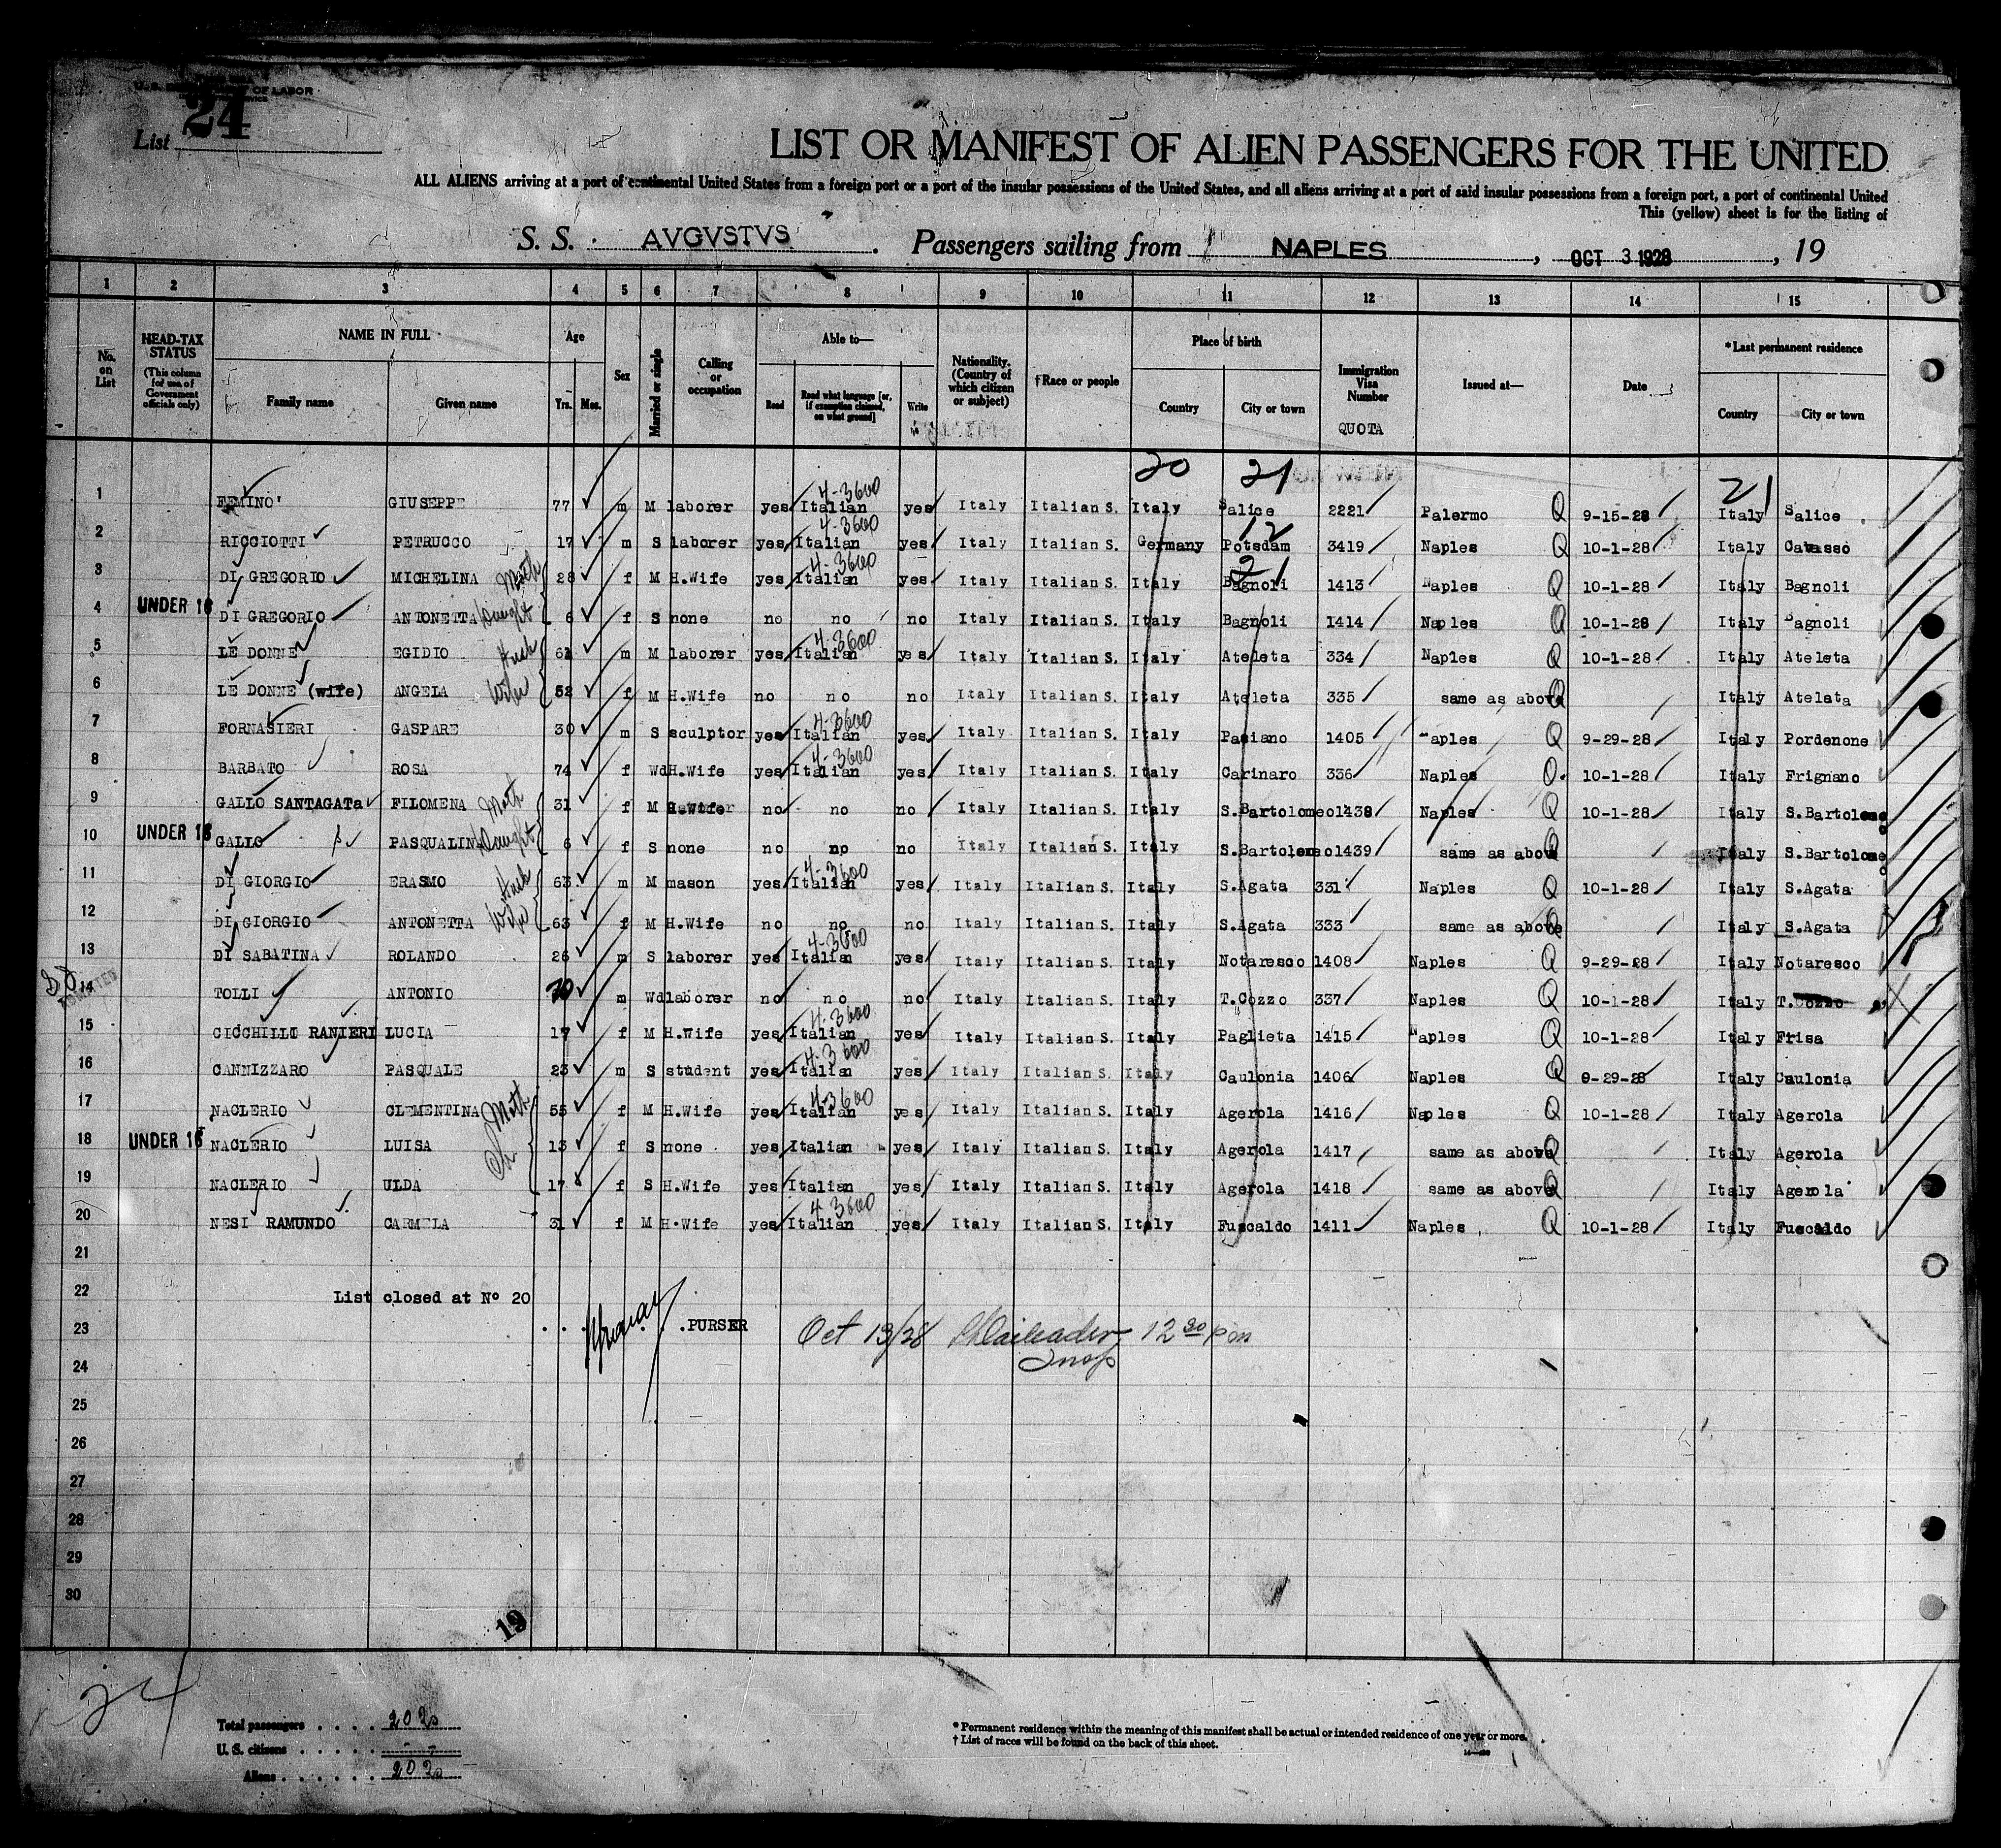 U. S. DEPARTMENT OF LABOR
List 24
LIST OR MANIFEST OF ALIEN PASSENGERS FOR THE UNITED
ALL ALIENS arriving at a port of continental United States from a foreign port or a port of the insular possessions of the United States, and all aliens arriving at a port of said insular possessions from a foreign port, a port of continental United
This (yellow) sheet is for the listing of
S. S. AVGVSTVS. Passengers sailing from NAPLES, OCT 3 1928, 19
1 2 3 4 5 6 7 8 9 10 11 12 13 14 15
No. on List
HEAD-TAX STATUS (This column for use of Government officials only)
NAME IN FULL
Family name Given name
Age
Yrs. Mos.
Sex
Married or single
Calling or occupation
Able to—
Read Read what language [or, if exemption claimed, on what ground] Write
Nationality. (Country of which citizen or subject)
†Race or people
Place of birth
Country City or town
Immigration Visa Number
QUOTA
Issued at—
Date
*Last permanent residence
Country City or town
20 21 21
1 FEMINO' GIUSEPPE 77 m M laborer yes Italian 4-3600 yes Italy Italian S. Italy Salice 2221 Palermo Q 9-15-28 Italy Salice
2 RICCIOTTI PETRUCCO 17 m S laborer yes Italian 4-3600 yes Italy Italian S. Germany Potsdam 12 3419 Naples Q 10-1-28 Italy Cavasso
3 DI GREGORIO MICHELINA Moth 28 f M H.Wife yes Italian 4-3600 yes Italy Italian S. Italy Bagnoli 21 1413 Naples Q 10-1-28 Italy Bagnoli
4 UNDER 16 DI GREGORIO ANTONETTA Daught 6 f S none no no no Italy Italian S. Italy Bagnoli 1414 Naples Q 10-1-28 Italy Bagnoli
5 LE DONNE EGIDIO Husb 61 m M laborer yes Italian 4-3600 yes Italy Italian S. Italy Ateleta 334 Naples Q 10-1-28 Italy Ateleta
6 LE DONNE (wife) ANGELA Wife 52 f M H.Wife no no no Italy Italian S. Italy Ateleta 335 same as above Q Italy Atelata
7 FORNASIERI GASPARE 30 m S sculptor yes Italian 4-3600 yes Italy Italian S. Italy Pasiano 1405 Naples Q 9-29-28 Italy Pordenone
8 BARBATO ROSA 74 f Wd H.Wife yes Italian 4-3600 yes Italy Italian S. Italy Carinaro 336 Naples Q. 10-1-28 Italy Frignano
9 GALLO SANTAGATa FILOMENA Moth 31 f M H.Wife no no no Italy Italian S. Italy S.Bartolomeo 1438 Naples Q 10-1-28 Italy S.Bartolomeo
10 UNDER 16 GALLO PASQUALINA Daught 6 f S none no no no Italy Italian S. Italy S.Bartolomeo 1439 same as above Q Italy S.Bartolomeo
11 DI GIORGIO ERASMO Husb 63 m M mason yes Italian 4-3600 yes Italy Italian S. Italy S.Agata 331 Naples Q 10-1-28 Italy S.Agata
12 DI GIORGIO ANTONETTA Wife 63 f M H.Wife no no no Italy Italian S. Italy S.Agata 333 same as above Q Italy S.Agata
13 DI SABATINA ROLANDO 26 m S laborer yes Italian 4-3600 yes Italy Italian S. Italy Notaresco 1408 Naples Q 9-29-28 Italy Notaresco
14 TOLLI ANTONIO 70 m Wd laborer no no no Italy Italian S. Italy T.Cozzo 337 Naples Q 10-1-28 Italy T.
15 CICCHILLI RANIERI LUCIA 17 f M H.Wife yes Italian 4-3600 yes Italy Italian S. Italy Paglieta 1415 Naples Q 10-1-28 Italy Frisa
16 CANNIZZARO PASQUALE 23 m S student yes Italian 4-3600 yes Italy Italian S. Italy Caulonia 1406 Naples Q 9-29-28 Italy Caulonia
17 NACLERIO CLEMENTINA Moth 55 f M H.Wife yes Italian 4-3600 yes Italy Italian S. Italy Agerola 1416 Naples Q 10-1-28 Italy Agerola
18 UNDER 16 NACLERIO LUISA Ch 13 f S none yes Italian yes Italy Italian S. Italy Agerola 1417 same as above Q Italy Agerola
19 NACLERIO ULDA 17 f S H.Wife yes Italian yes Italy Italian S. Italy Agerola 1418 same as above Q Italy Agerola
20 NESI RAMUNDO CARMELA 31 f M H.Wife yes Italian 4-3600 yes Italy Italian S. Italy Fuscaldo 1411 Naples Q 10-1-28 Italy Fuscaldo
21
22 List closed at Nº 20
23 PURSER Oct 13/28 12 30 pm
24 Insp
25
26
27
28
29
30
19
24
Total passengers . . . . 20 20
U. S. citizens . . . . . .
Aliens . . . . . . 20 20
* Permanent residence within the meaning of this manifest shall be actual or intended residence of one year or more.
† List of races will be found on the back of this sheet.